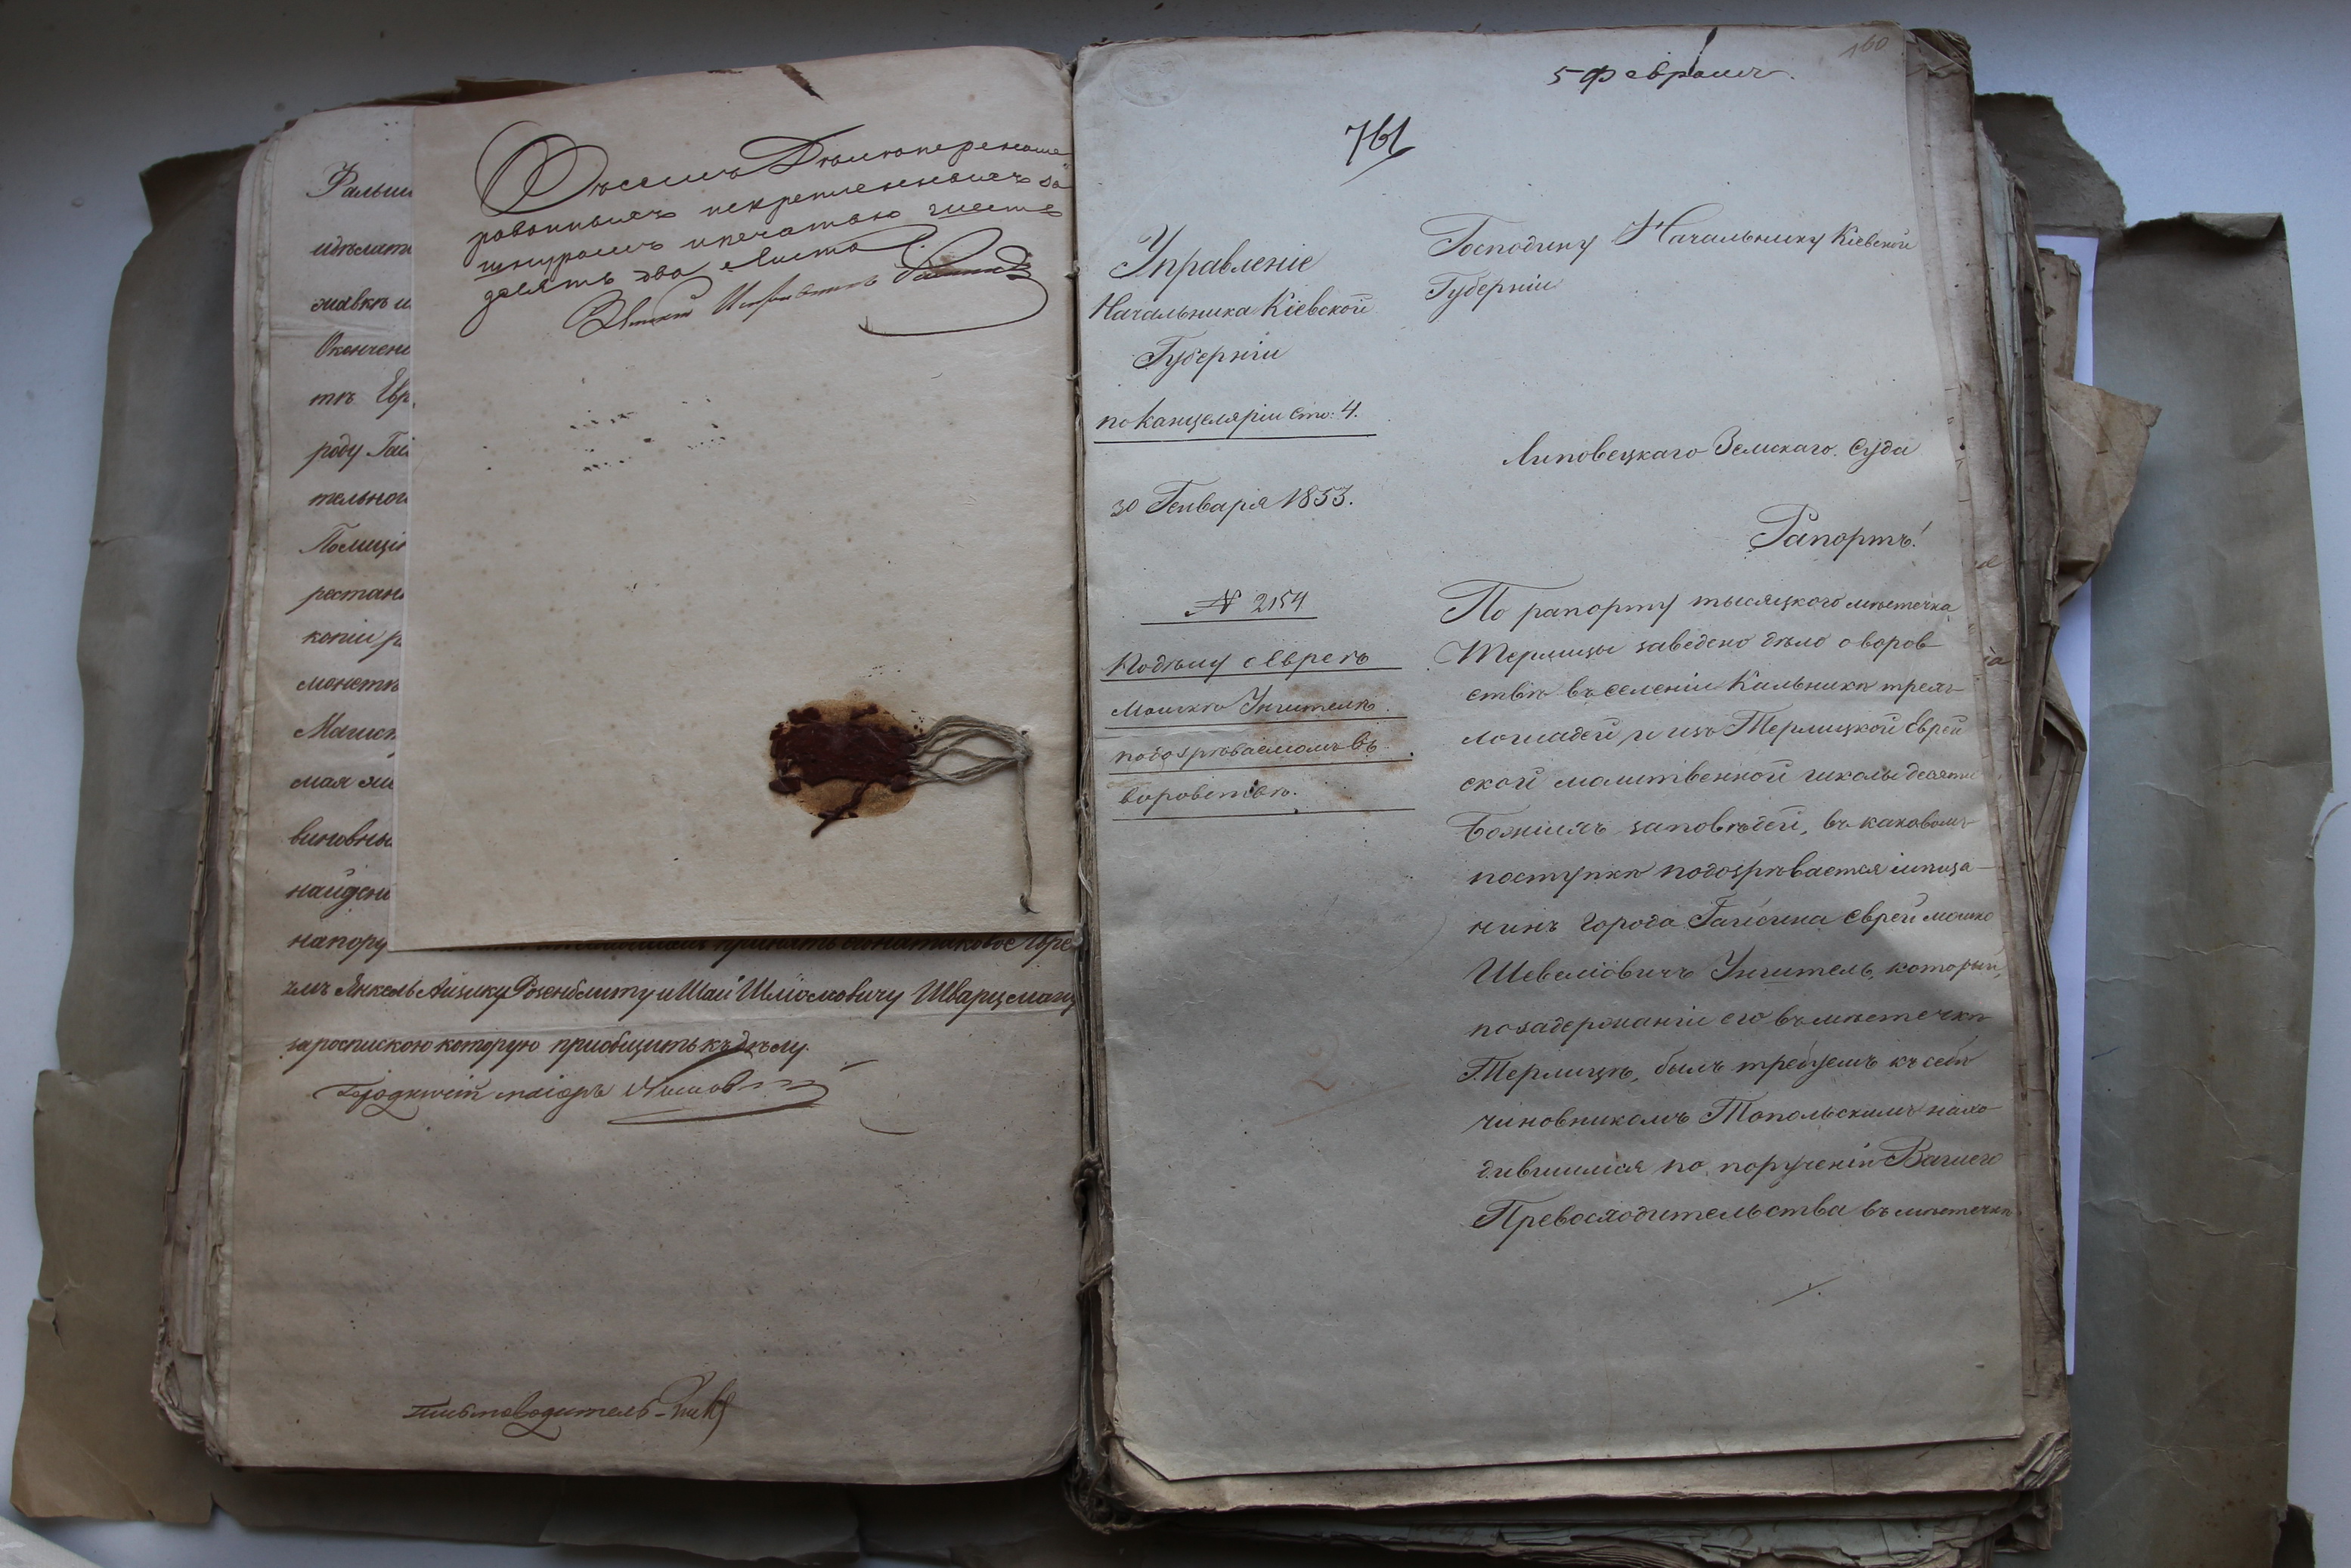 Фальши
идѣлате
лавкѣ и
Окончені
тѣ Евр
роду Гай
тельног
Полиціи
рестан
копіи р
монетѣ
Магист
мая
виновны
найден
напору
принять
чмъ Янкель Айзику Розенблиту и Шаи Шлiомовичу Шварцману
заросписскою которую пріобщить къ дѣлу.
Городничій маіоръ
письмоводитель
Въ семъ Дѣлѣ перенуме
рованныхъ искрепленныхъ за
шнуромъ ипечатью шесть
десятъ два листа
160
5 февраля
761
Управленіе
Начальника Кіевской
Губерніи
по Канцеляріи Сто: 4.
30 Генваря 1853.
№ 2154
Подѣлу о Евреѣ
Мошкѣ Учителѣ
подозрѣваемомъ въ
воровствѣ.
Господину Начальнику Кіевской
Губерніи
Липовецкаго Земскаго Суда
Рапортъ!
По рапорту тысяцкого мѣстечка
Терлицы заведено дѣло о воров
ствѣ въ селеніи Кальникѣ трехъ
лошадей, и изъ Терлицкой Еврей
ской молитвенной школы десяти
Божіихъ заповѣдей, въ каковомъ
поступкѣ подозрѣвается мѣща-
нинъ города Гайсина Еврей Мошко
Шевеліовичъ Учитель, который,
по задержаніи его въ мѣстечкѣ
Терлицѣ, былъ требуемъ къ себѣ
чиновникомъ Топольскимъ нахо-
дившимся по порученію Вашего
Превосходительства въ мѣстечкѣ